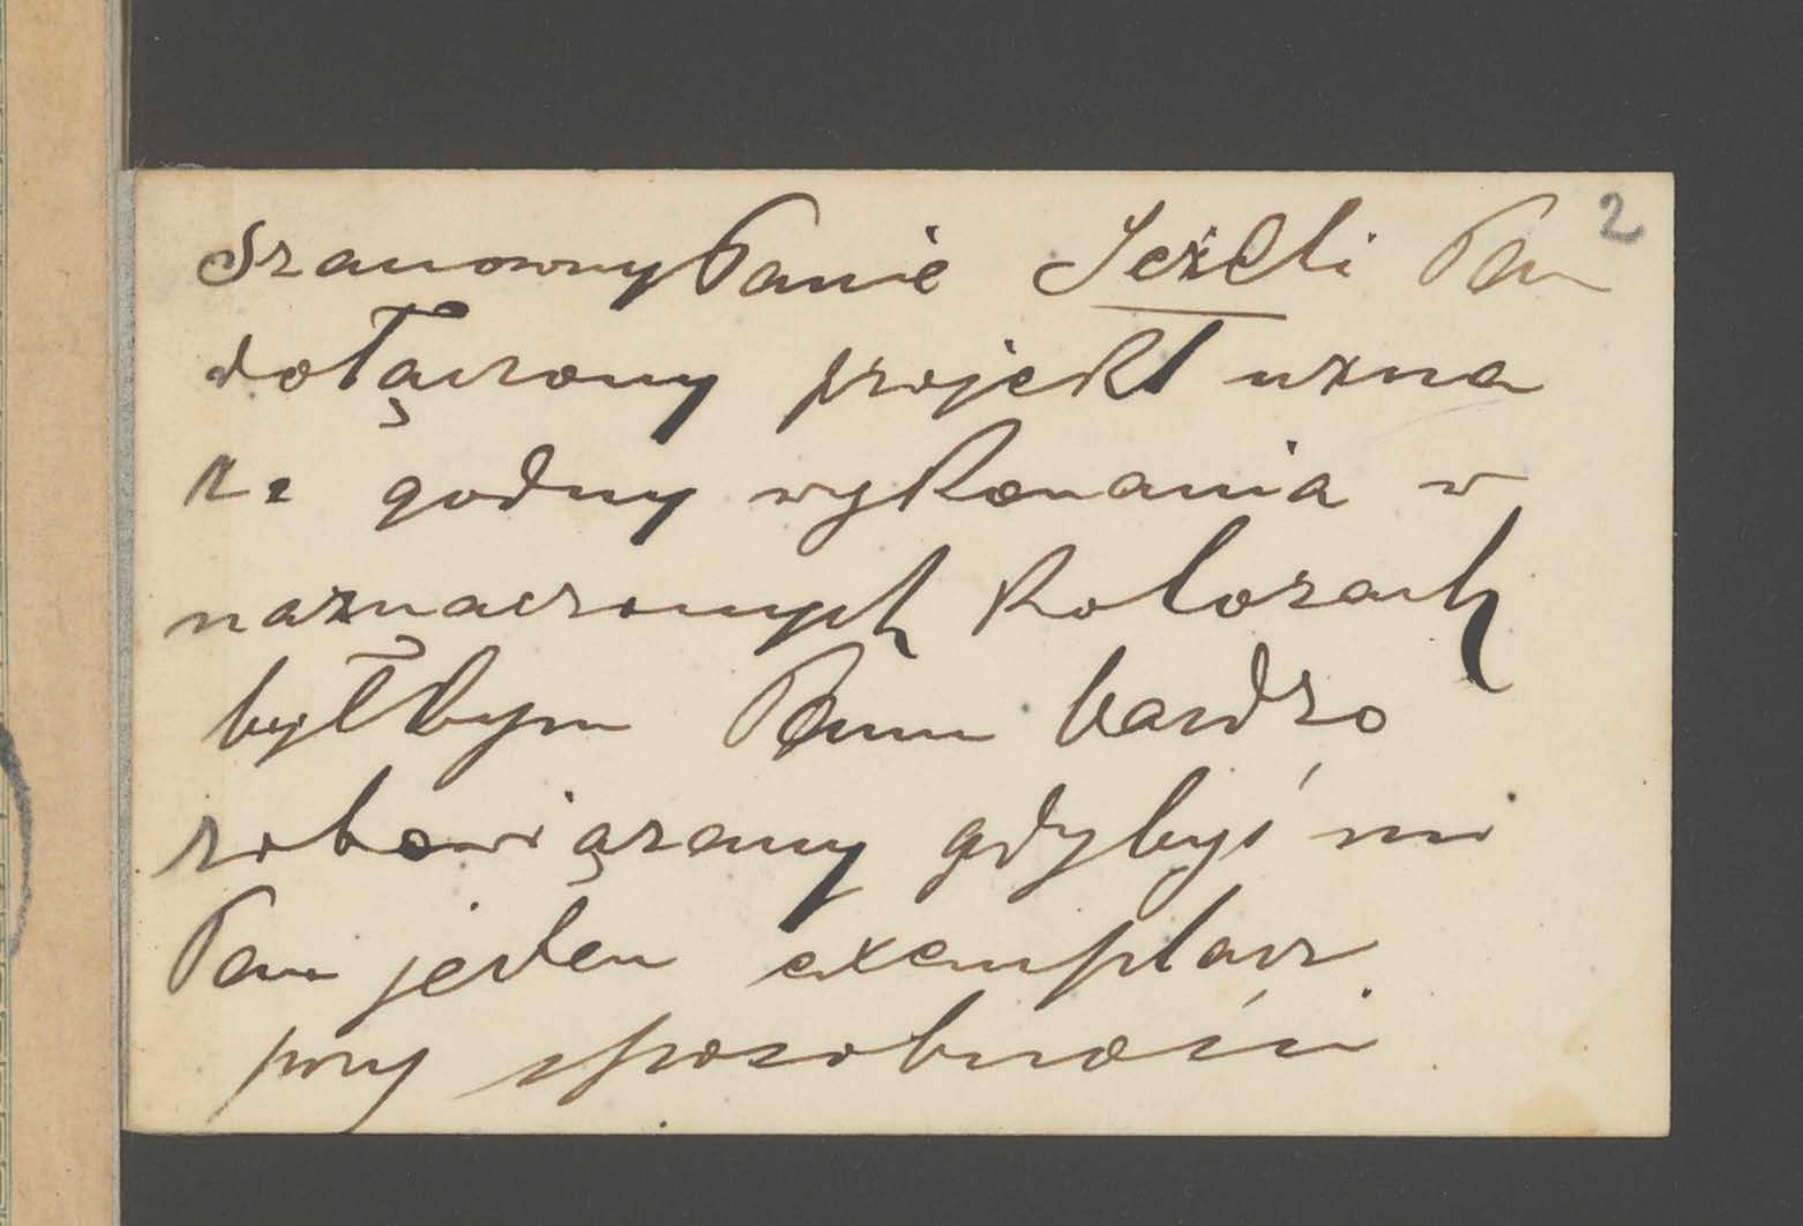 2
Szanowny Panie Jeżeli Pan
dołączony projekt uzna
za godny wykonania w
naznaczonych kolorach
byłbym Panu bardzo
zobowiązany gdybyś mi
Pan jeden exemplarz
przy sposobności